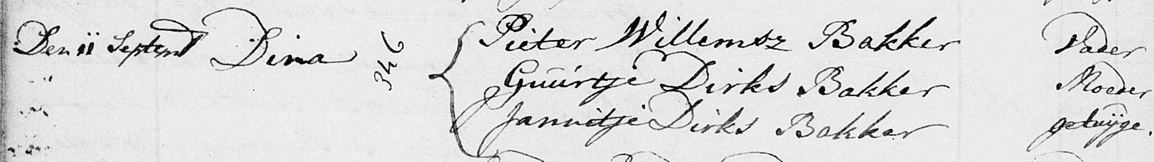 Den 11 Septemb Dina 346 Pieter Willemsz Bakker Vader
Guurtje Dirks Bakker Moeder
Jannitje Dirks Bakker getuijge.